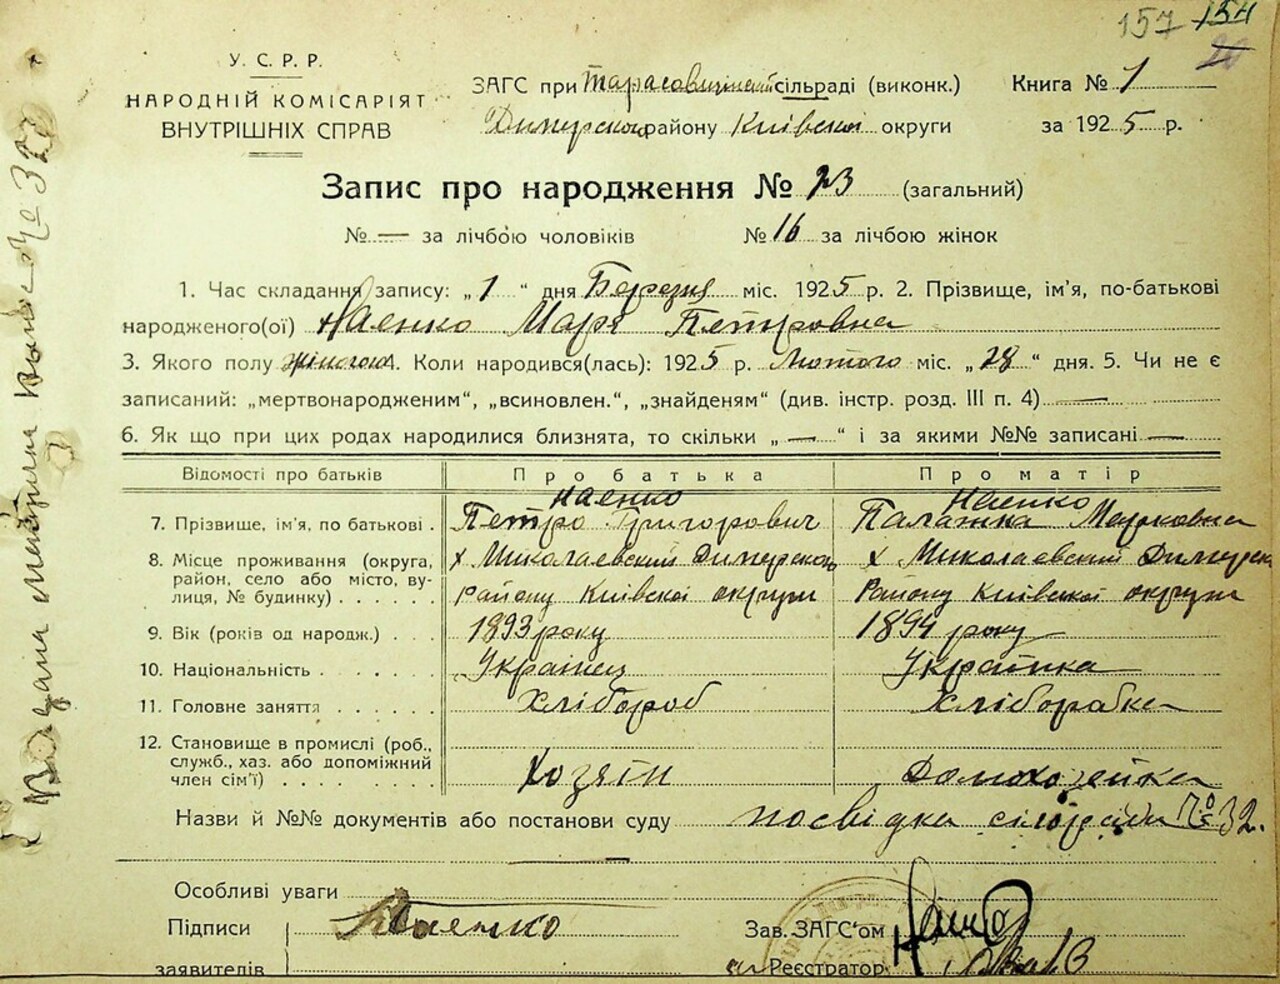 157 154
20
У. С. Р. Р.
НАРОДНІЙ КОМІСАРІЯТ
ВНУТРІШНІХ СПРАВ
ЗАГС при Тарасовицінській сільраді (виконк.) Книга № 1
Димерского району Київскої округи за 1925 р.
Запис про народження № 23 (загальний)
№ — за лічбою чоловіків № 16 за лічбою жінок
1. Час складання запису: „1“ дня Березня міс. 1925 р. 2. Прізвище, ім'я, по-батькові
народженого(ої) Наєнко Марія Петровна
3. Якого полу жіночого 4. Коли народився(лась): 1925 р. Лютого міс. „28“ дня. 5. Чи не є
записаний: „мертвонародженим“, „всиновлен.“, „знайденям“ (див. інстр. розд. III п. 4) —
6. Як що при цих родах народилися близнята, то скільки „—“ і за якими №№ записані —
Відомості про батьків Про батька Про матір
Наенко Наенко
7. Прізвище, ім'я, по батькові . Петро Григорович Палажка Марковна
8. Місце проживання (округа, х Миколаевский Димерского х Миколаевский
район, село або місто, ву-
лиця, № будинку) . . . . . . району Київскої округи району Київскої округи
9. Вік (років од народж.) . . . 1893 року 1894 року
10. Національність . . . . . . Українец Українка
11. Головне заняття . . . . . . Хлібороб Хліборобка
12. Становище в промислі (роб.,
служб., хаз. або допоміжний
член сім'ї) . . . . . . . Хозяін Домохозяйка
Назви й №№ документів або постанови суду посвідка сільради № 32.
Особливі уваги
Підписи Наенко Зав. ЗАГС'ом
заявителів Реєстратор
Видана метрична № 323